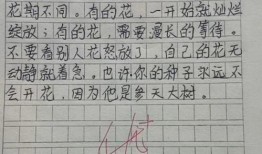 花期不同。有的花，一开始就灿烂
绽放；有的花，需要漫长的等待。
不要看别人花怒放了，自己的花无
动静就着急。也许你的种子永远不
会开花，因为他是参天大树。
优+